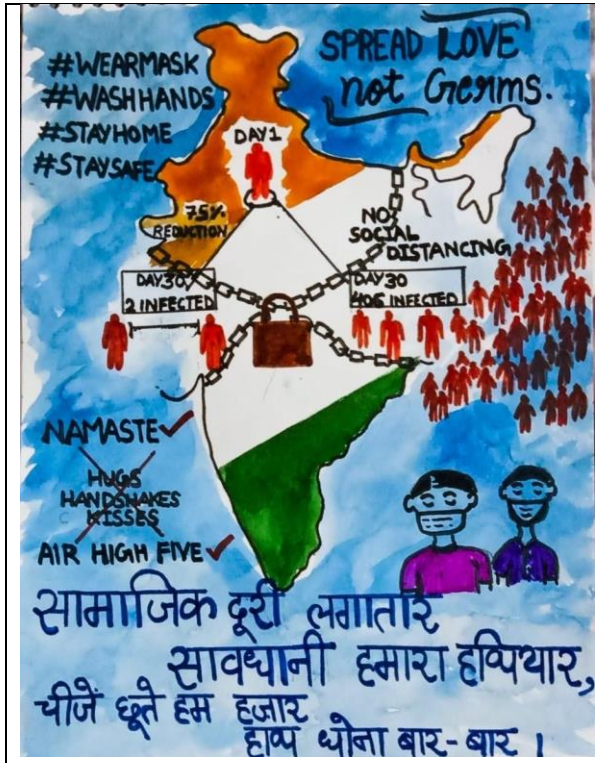 SPREAD LOVE
not Germs.
#WEARMASK
#WASHHANDS
#STAYHOME
#STAYSAFE
DAY 1
75%
REDUCTION
NO
SOCIAL
DISTANCING
DAY 30
2 INFECTED
DAY 30
406 INFECTED
NAMASTE ✓
HUGS
HANDSHAKES
KISSES
AIR HIGH FIVE ✓
सामाजिक दूरी लगातार
सावधानी हमारा हथियार,
चीजें छूते हम हजार
हाथ धोना बार-बार।